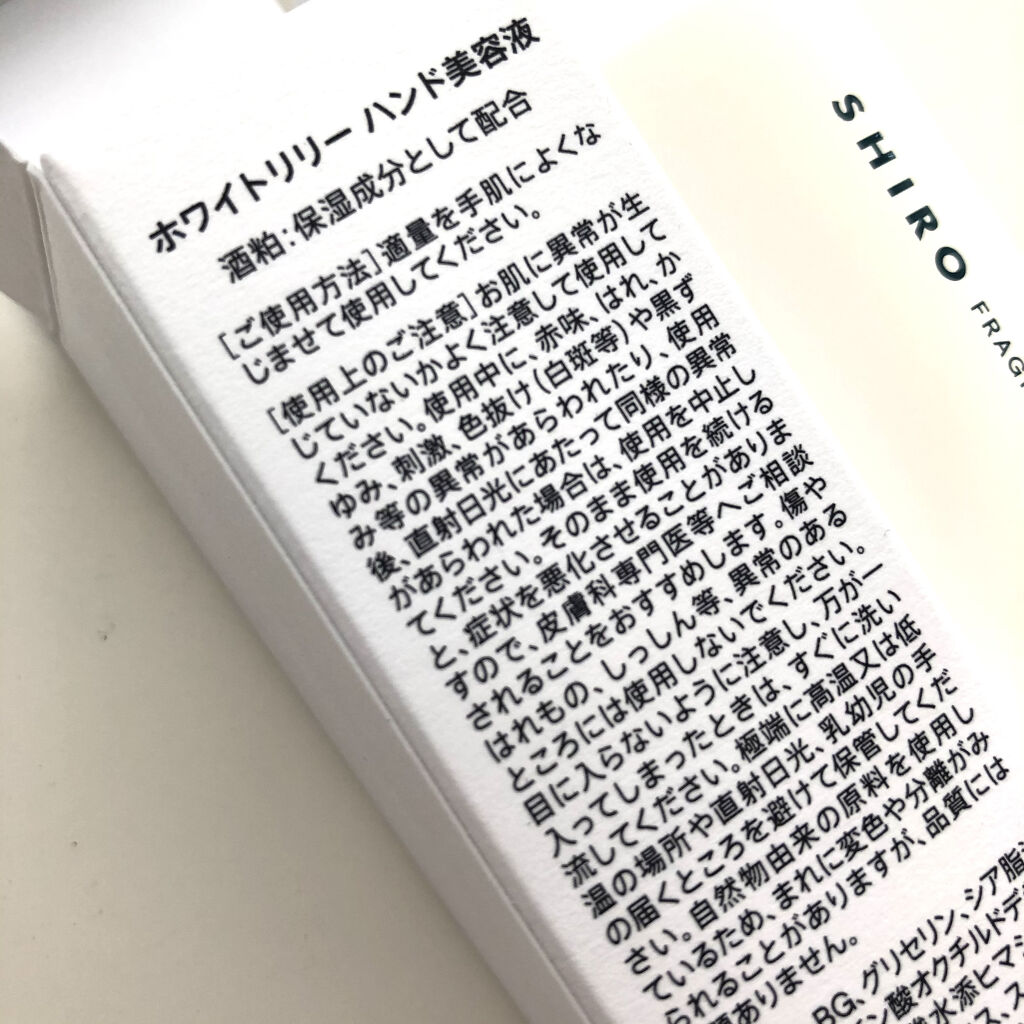 ホワイトリリー ハンド美容液
酒粕：保湿成分として配合
［ご使用方法］適量を手肌によくな
じませて使用してください。
［使用上のご注意］お肌に異常が生
じていないかよく注意して使用して
ください。使用中に、赤味、はれ、か
ゆみ、刺激、色抜け（白斑等）や黒ず
み等の異常があらわれたり、使用
後、直射日光にあたって同様の異常
があらわれた場合は、使用を中止し
てください。そのまま使用を続ける
と、症状を悪化させることがありま
すので、皮膚科専門医等へご相談
されることをおすすめします。傷や
はれもの、しっしん等、異常のある
ところには使用しないでください。
目に入らないように注意し、万が一
入ってしまったときは、すぐに洗い
流してください。極端に高温又は低
温の場所や直射日光、乳幼児の手
の届くところを避けて保管してくだ
さい。自然物由来の原料を使用し
ているため、まれに変色や分離がみ
られることがありますが、品質には
ありません。
BG、グリセリン、シア脂
ン酸オクチルドデ
水添ヒマシ
SHIRO
FRAG